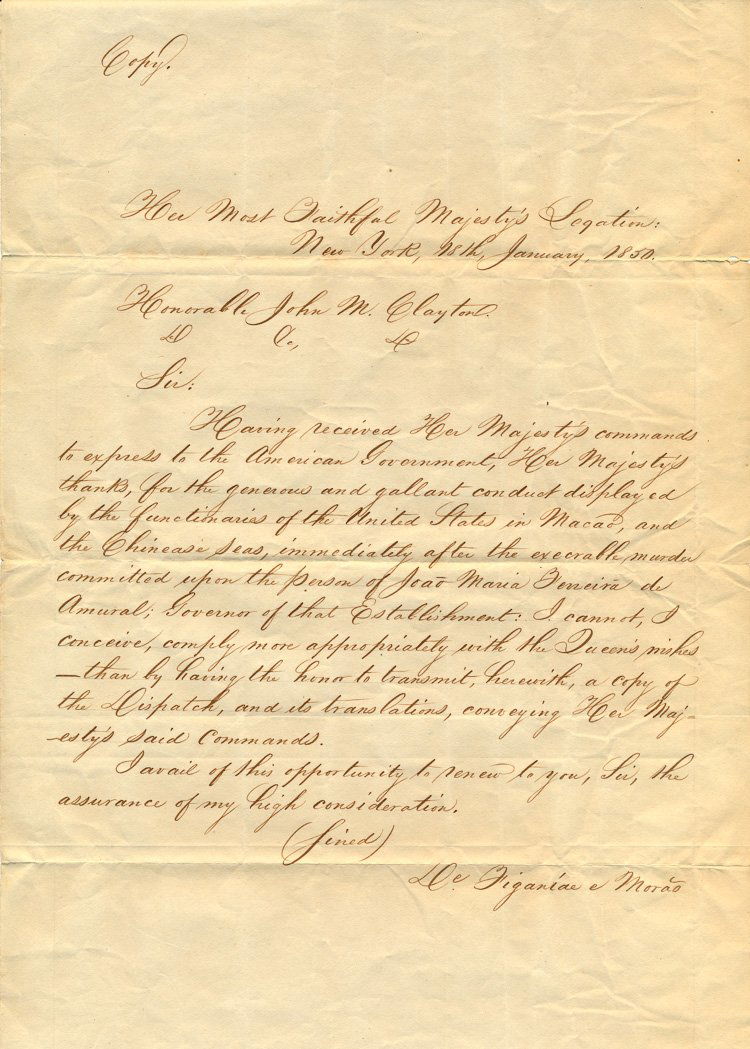 Copy.
Her Most Faithful Majesty's Legation:
New York, 18th, January, 1850.
Honorable John M. Clayton.
&c &c, &c
Sir:
Having received Her Majesty's commands
to express to the American Government, Her Majesty's
thanks, for the generous and gallant conduct displayed
by the functionaries of the United States in Macaõ, and
the Chinease seas, immediately after the execrable murder
committed upon the person of Joaõ Maria Ferreira de
Amural; Governor of that Establishment: I cannot, I
conceive, comply more appropriately with the Queen's wishes
—than by having the honor to transmit, herewith, a copy of
the Dispatch, and its translations, conveying Her Maj-
-esty's said commands.
I avail of this opportunity to renew to you, Sir, the
assurance of my high consideration.
(Sined)
De Figaniae e Morão